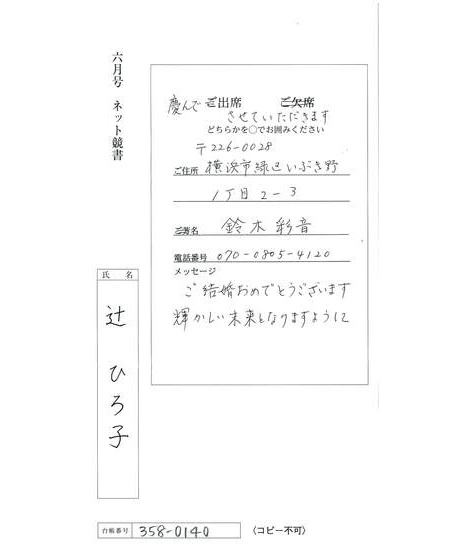 六月号 ネット競書
慶んで ご出席 ご欠席
させていただきます
どちらかを○でお囲みください
〒226-0028
ご住所 横浜市緑区いぶき野
1丁目2-3
ご芳名 鈴木彩音
電話番号 070-0805-4120
メッセージ
ご結婚おめでとうございます
輝かしい未来となりますように
氏名
辻ひろ子
台帳番号 358-0140
〈コピー不可〉